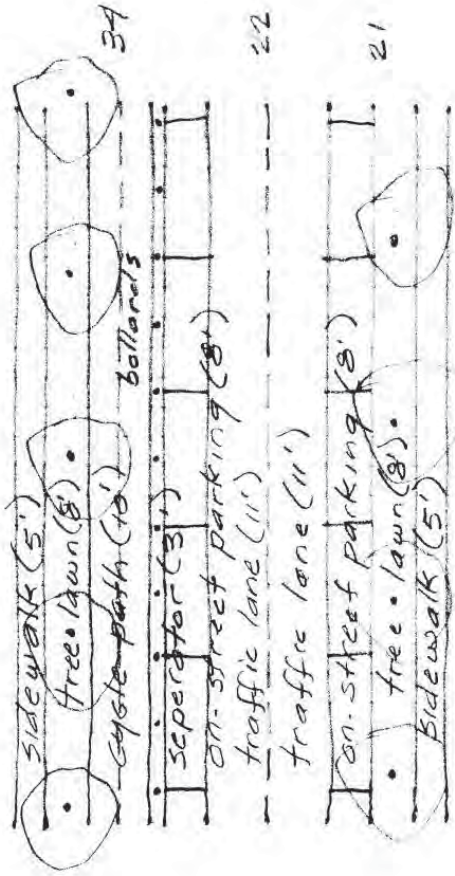 sidewalk (5')
tree lawn (8')
cycle path (10')
bollards
seperator (3')
on-street parking (8')
traffic lane (11')
traffic lane (11')
on-street parking (8')
tree lawn (8')
sidewalk (5')
34
22
21